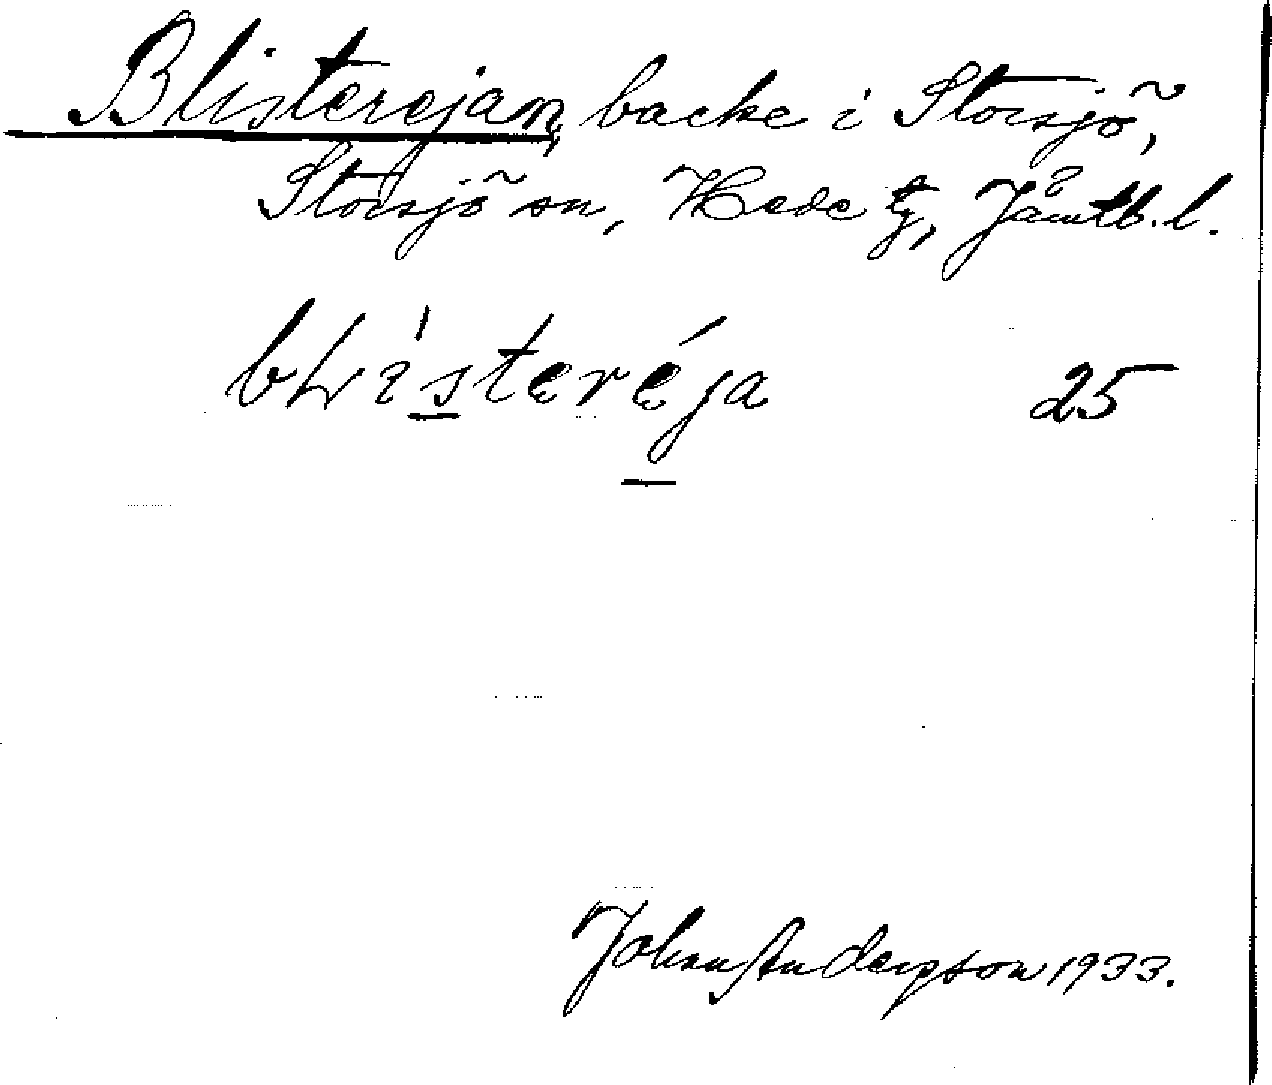 Blisterejan, backe i Storsjö,
Storsjö sn, Hede tg, Jämtl. l.
bLìsteréja 25
Johan Anderpson 1933.